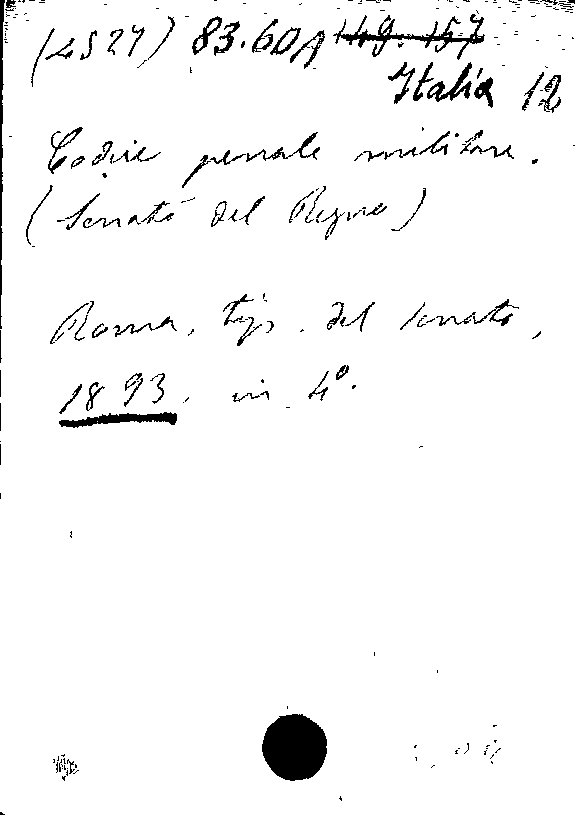 (4527) 83.60A 149.157
Italia 12
Codice penale militare.
(Senato del Regno)
Roma, tip. del Senato,
1893. in 4°.